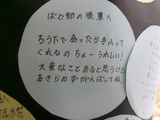 ばど部の後輩へ
ろうかで会ったり手ふって
くれるのちょーうれしい!
大変なことあると思うけど
あきらめずがんばってね